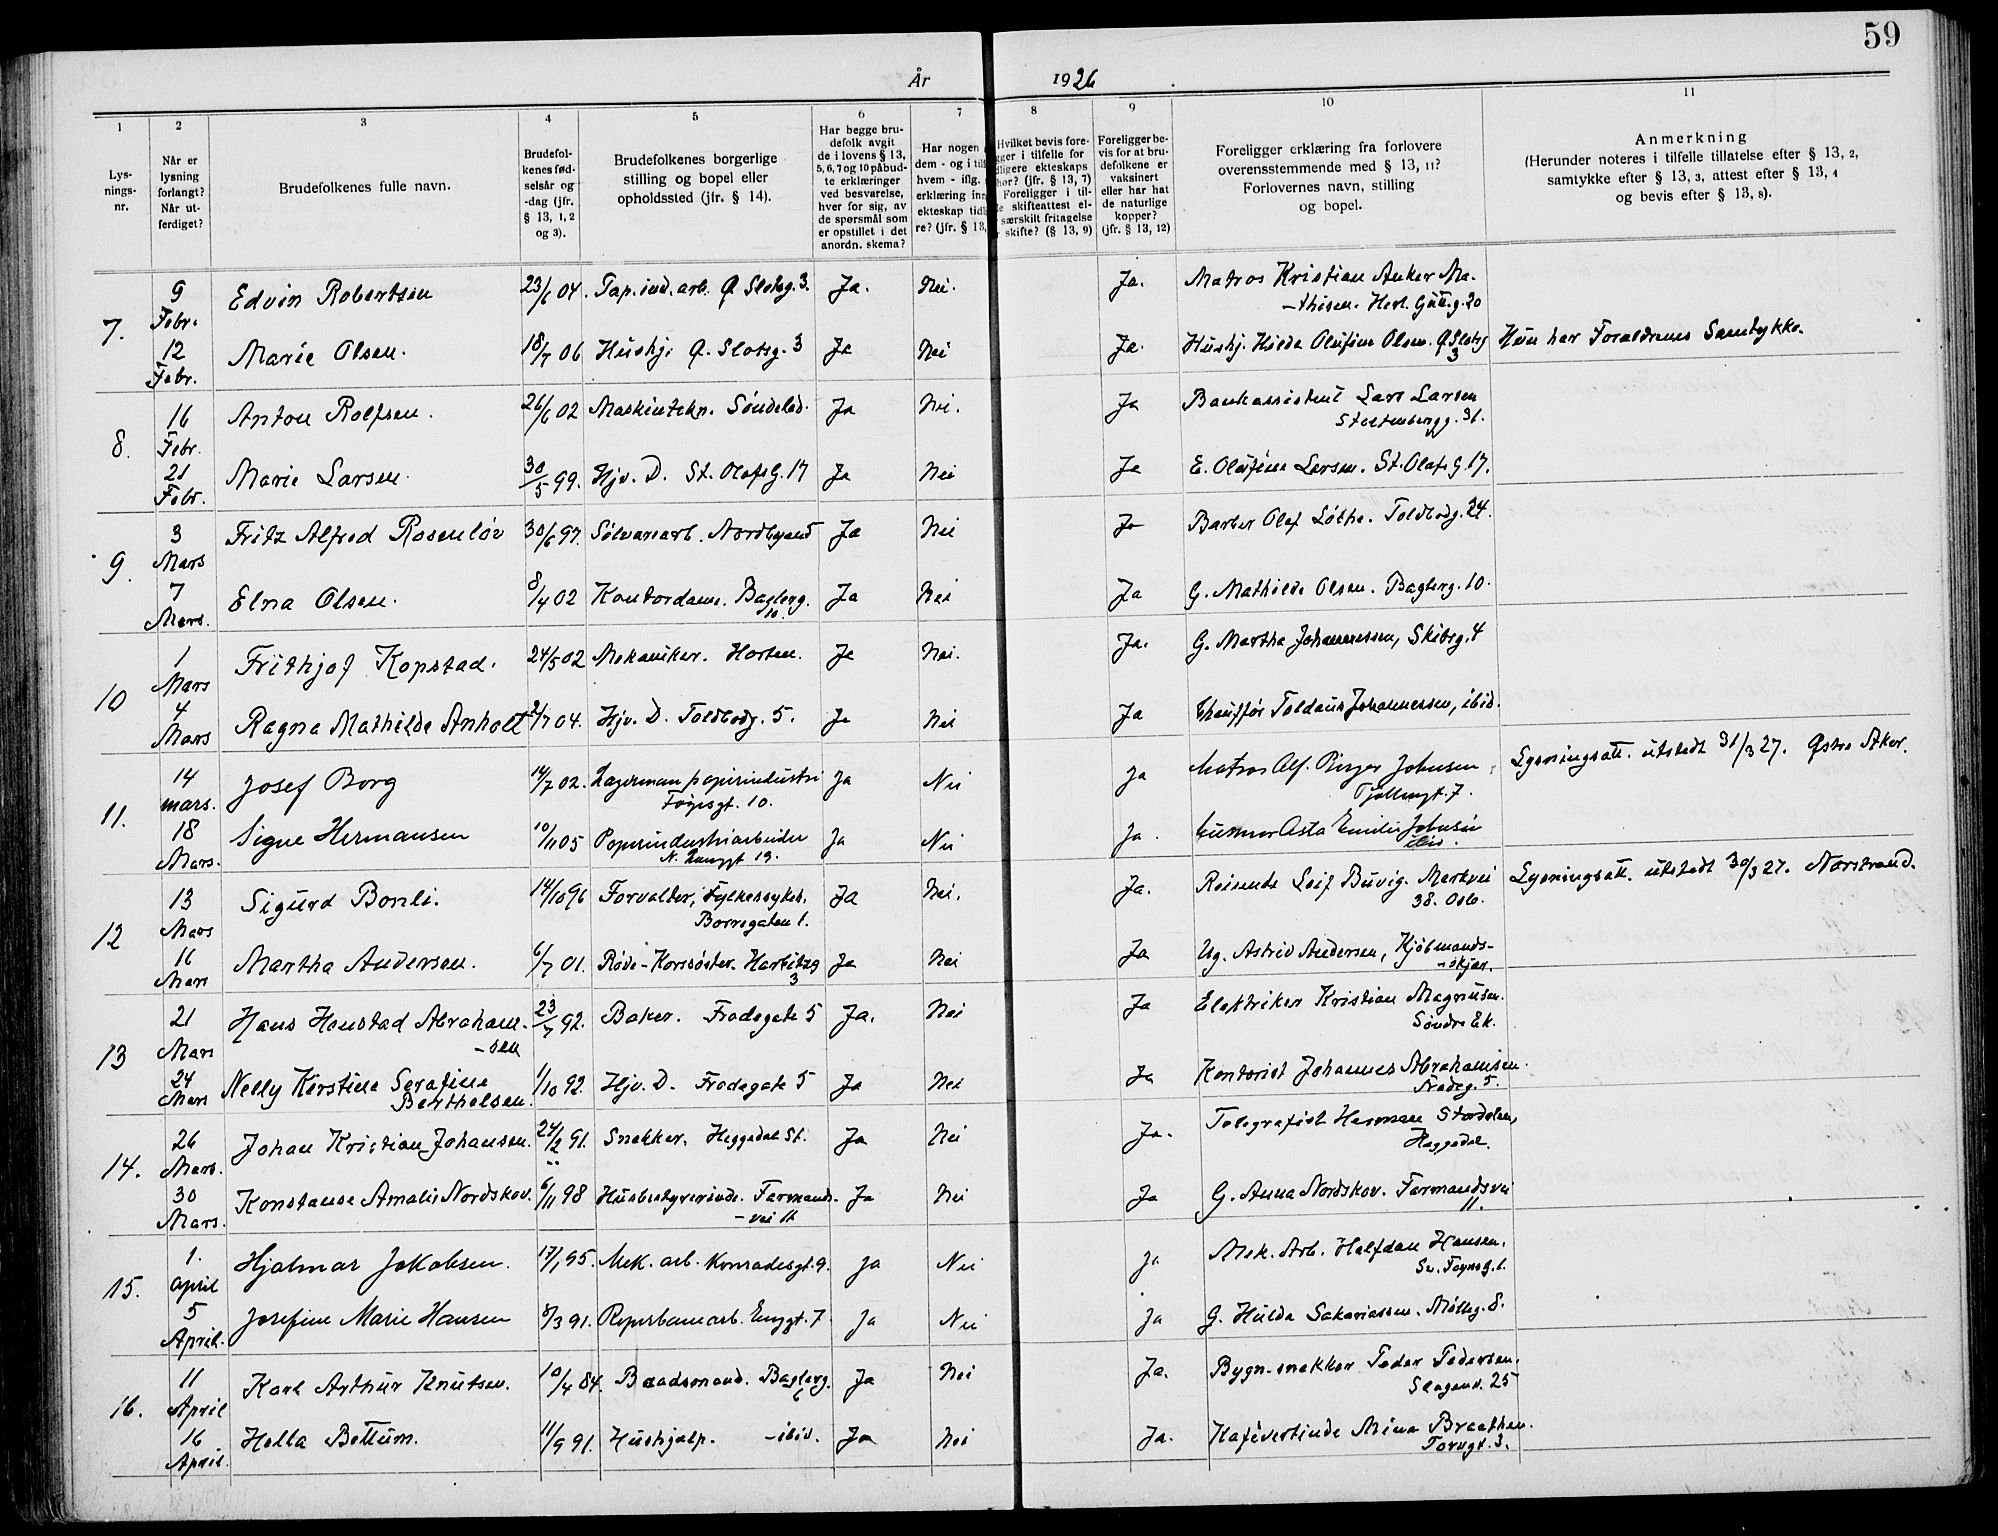 59
År 1926
1 2 3 4 5 6 7 8 9 10 11
Lys-
nings-
nr.
Når er
lysning
forlangt?
Når ut-
ferdiget?
Brudefolkenes fulle navn.
Brudefol-
kenes fød-
selsår og
-dag (jfr.
§ 13, 1, 2
og 3).
Brudefolkenes borgerlige
stilling og bopel eller
opholdssted (jfr. § 14).
Har begge bru-
defolk avgit
de i lovens § 13,
5, 6, 7 og 10 påbud-
te erklæringer
ved besvarelse,
hver for sig, av
de spørsmål som
er opstillet i det
anordn. skema?
Har nogen
dem - og i til
hvem - iflg.
erklæring inn
ekteskap tid
re? (jfr. § 13,
Hvilket bevis fore-
gger i tilfelle for
dligere ekteskaps
hør? (jfr. § 13, 7)
Foreligger i til-
e skifteattest el-
særskilt fritagelse
r skifte? (§ 13, 9)
Foreligger be-
vis for at bru-
defolkene er
vaksinert
eller har hat
de naturlige
kopper?
(jfr. § 13, 12)
Foreligger erklæring fra forlovere
overensstemmende med § 13, 11?
Forlovernes navn, stilling
og bopel.
Anmerkning
(Herunder noteres i tilfelle tillatelse efter § 13, 2,
samtykke efter § 13, 3, attest efter § 13, 4
og bevis efter § 13, 8).
7. 9 Febr. Edvin Robertsen 23/6 04. Tap.ind.arb. Ø Slotsg. 3. Ja. Nei. Ja. Matros Kristian Anker Ma-
-thisen.
12 Febr. Marie Olsen. 18/7 06 Hushj. Ø. Slotsg. 3 Ja Nei Ja. Hushj. Hilda Olufine Olsen. Ø Slotsg 3 Hun har Forældrenes Samtykke.
8. 16 Febr. Anton Rolfsen. 26/6 02 Maskintekn. Søndeled. Ja Nei. Ja Bankassistent Lars Larsen
Stoltenbergg. 31.
21 Febr. Marie Larsen. 30/5 99. Hjv. D. St. Olafs G. 17 Ja Nei Ja E. Olufine Larsen. St. Olafs G 17.
9. 3 Mars Fritz Alfred Rosenløv 30/6 97. Sølvarearb. Nordbyend Ja Nei Ja Barber Olaf Løthe. Toldbodg. 24.
7 Mars. Elna Olsen. 8/4 02 Kontordame. Baglerg.
10. Ja Nei Ja G. Mathilde Olsen. Baglerg. 10.
10 1 Mars Frithjof Kopstad. 24/5 02 Mekaniker. Horten. Ja Nei. Ja. G. Martha Johannessen, Skibsg. 4
4 Mars Ragna Mathilde Anholt 2/7 04. Hjv. D. Toldbodg. 5. Ja Nei Ja Chauffør Johannessen, ibid.
11. 14 mars. Josef Borg 14/7 02. Lagerman papirindustri
Føynsgt. 10. Ja Nei Ja Matros Alf. Birger Johnsen
Tjøllingt. 7. Lysningsatt. utstedt 31/3 27. Østre Aker.
18 Mars. Signe Hermansen 10/11 05 Papirindustriarbeider
N. Langgt 19. Ja Nei Ja. Asta Emilie Johnsen
ibid.
12 13 Mars Sigurd Bonli. 14/10 96 Forvalter, Fylkessykeh.
Borregaten 1. Ja Nei. Ja. Reisende Leif Buvig. Markvei
38. Oslo. Lysningsatt. utstedt 30/3 27. Norstrand.
16 Mars Martha Andersen. 6/7 01. Røde-Korssøster. Harbitzg
3 Ja Nei Ja Ug. Astrid Andersen, Kjøbmands-
-skjær.
13 21 Mars Hans Haustad Abraham-
-sen 23/7 92. Baker. Frodegate 5 Ja. Nei Ja Elektriker Kristian Magnusen.
Søndre Ek.
24 Mars Nelly Kirstine Serafine
Berthelsen. 1/10 92. Hjv. D. Frodegate 5 Ja Nei Ja Kontorist Johannes Abrahamsen.
Frodeg. 5.
14. 26 Mars. Johan Kristian Johansen. 27/2 91. Snekker. Heggedal St. Ja Nei Ja. Telegrafist Herman Stordalen,
Heggedal.
30 Mars. Konstanse Amalie Nordskov. 6/11 98 Husbestyrerinde. Farmands-
-vei 11 Ja Nei Ja G. Anna Nordskov. Farmandsvei
11.
15. 1. april Hjalmar Jakobsen. 17/1 95. Mek. arb. Konradesgt. 9. Ja Nei Ja Mek. Arb. Halfdan Hansen.
Sv. Foyns g. 1.
5 April. Josefine Marie Hansen 8/3 91. Reperbanearb. Enggt. 7 Ja Nei Ja G. Hulda Sakariassen. Mølleg. 8.
16. 11 April Karl Arthur Knutsen. 10/4 84. Baadsmand. Baglerg. Ja Nei Ja. Bygn-snekker Peder Pedersen.
Slagenv. 25
16 April. Hella Bettum. 11/9 91. Hushjælp. -ibid. Ja Nei Ja. Kaféværtinde Mina Braathen.
Torvgt. 3.